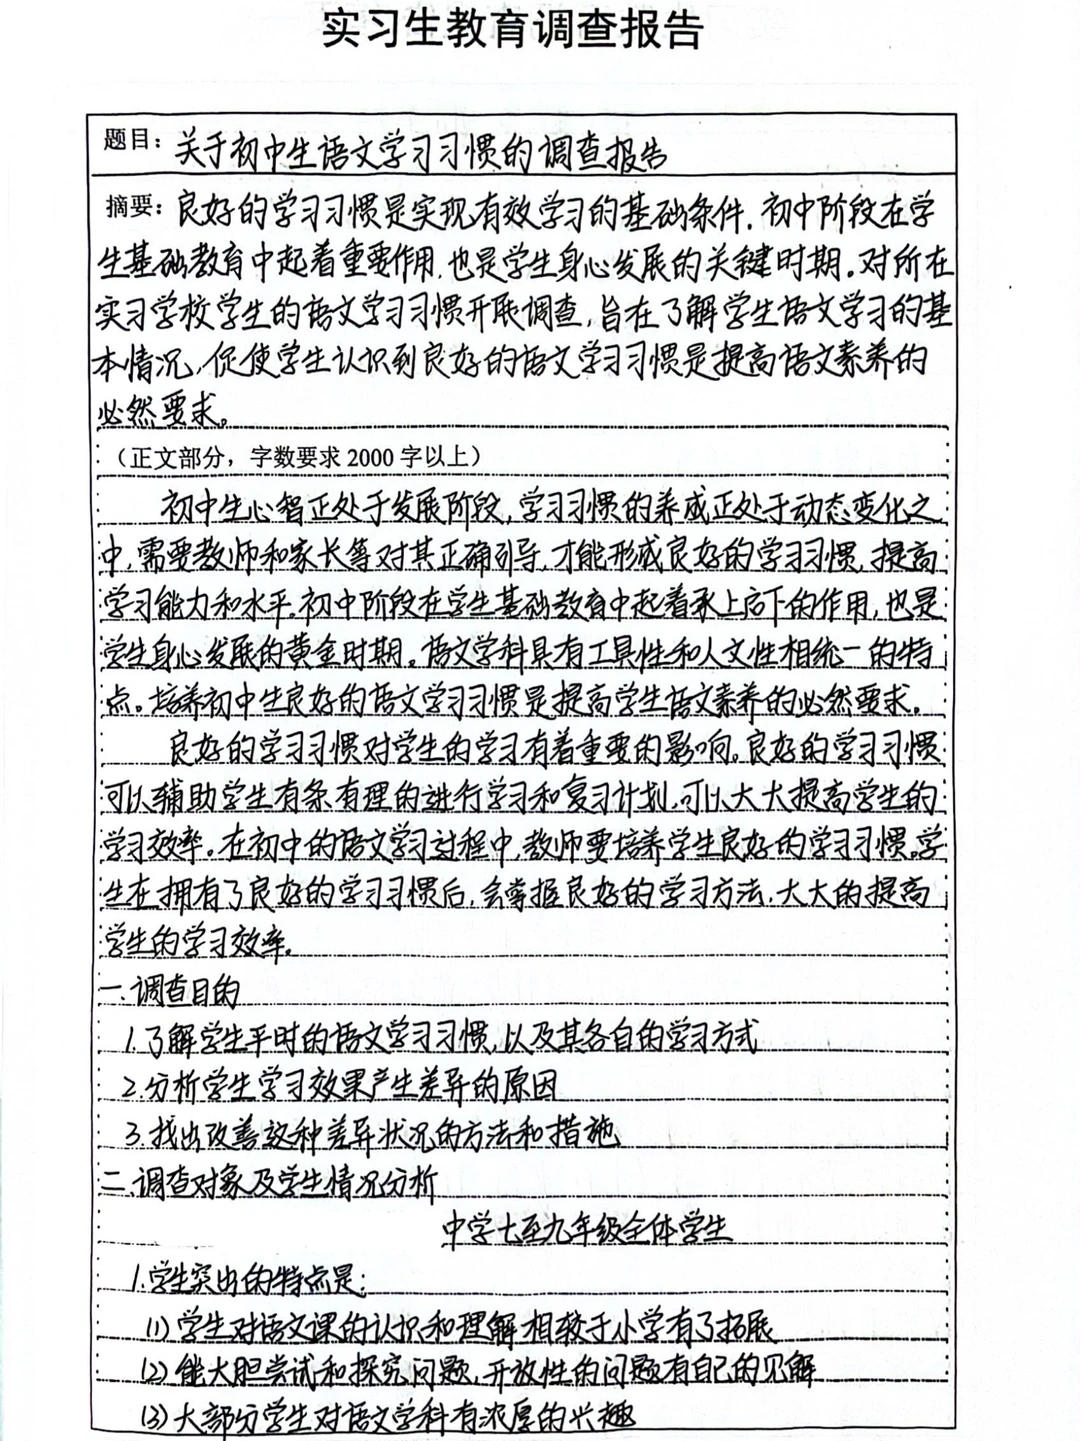 实习生教育调查报告
题目：关于初中生语文学习习惯的调查报告
摘要：良好的学习习惯是实现有效学习的基础条件.初中阶段在学
生基础教育中起着重要作用,也是学生身心发展的关键时期。对所在
实习学校学生的语文学习习惯开展调查,旨在了解学生语文学习的基
本情况,促使学生认识到良好的语文学习习惯是提高语文素养的
必然要求。
（正文部分，字数要求2000字以上）
初中生心智正处于发展阶段,学习习惯的养成正处于动态变化之
中,需要教师和家长等对其正确引导,才能形成良好的学习习惯,提高
学习能力和水平.初中阶段在学生基础教育中起着承上启下的作用,也是
学生身心发展的黄金时期。语文学科具有工具性和人文性相统一的特
点。培养初中生良好的语文学习习惯是提高学生语文素养的必然要求。
良好的学习习惯对学生的学习有着重要的影响。良好的学习习惯
可以辅助学生有条有理的进行学习和复习计划,可以大大提高学生的
学习效率。在初中的语文学习过程中,教师要培养学生良好的学习习惯。学
生在拥有了良好的学习习惯后,会掌握良好的学习方法,大大的提高
学生的学习效率.
一.调查目的
1.了解学生平时的语文学习习惯,以及其各自的学习方式
2.分析学生学习效果产生差异的原因
3.找出改善这种差异状况的方法和措施
二.调查对象及学生情况分析
中学七至九年级全体学生
1.学生突出的特点是:
(1)学生对语文课的认识和理解相较于小学有了拓展
(2)能大胆尝试和探究问题,开放性的问题有自己的见解
(3)大部分学生对语文学科有浓厚的兴趣